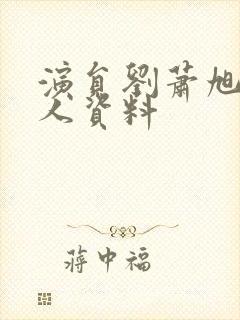 演員劉蕭旭
人資料
蔣中福